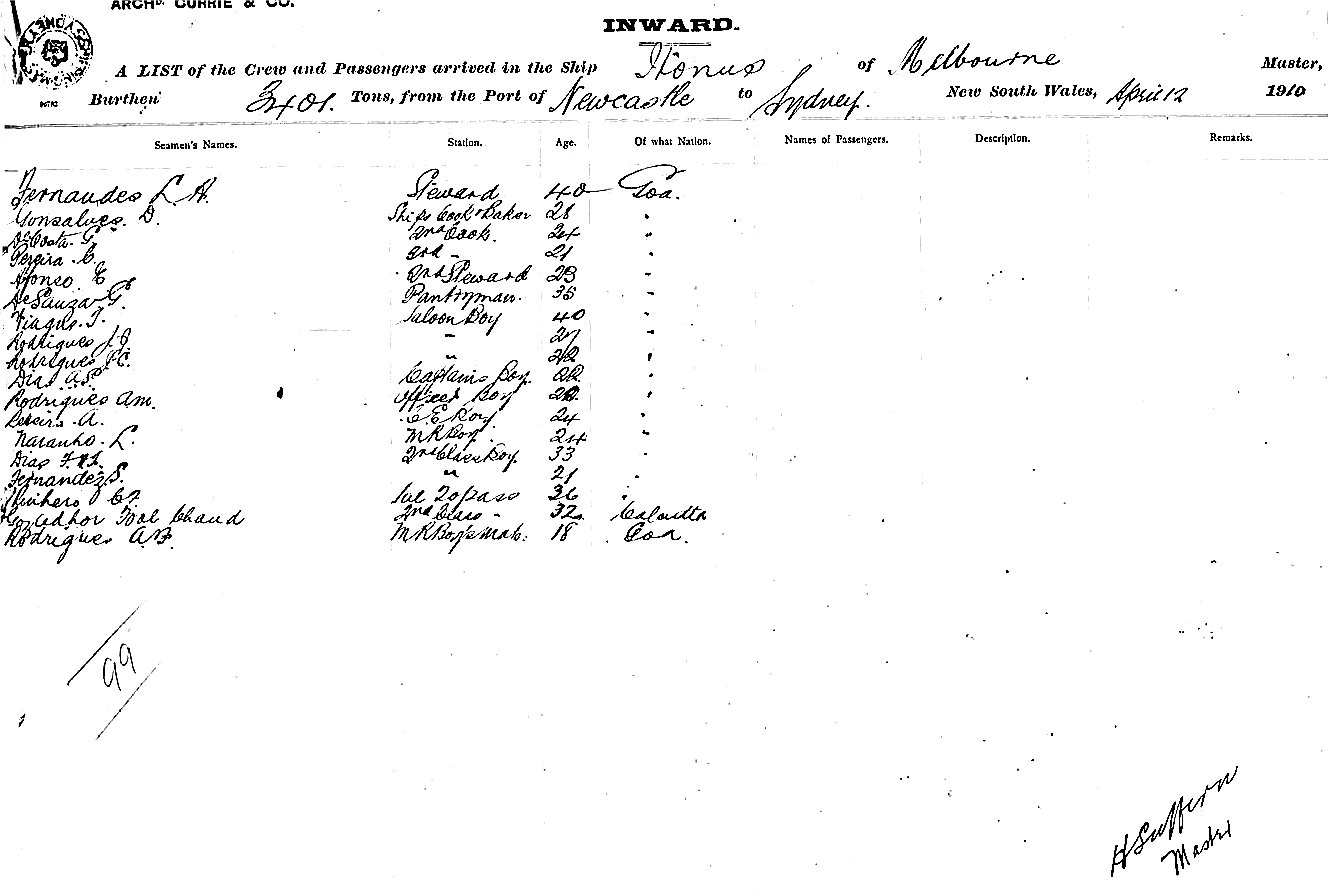 ARCHD. CURRIE & CO.
INWARD.
A LIST of the Crew and Passengers arrived in the Ship Itonus of Melbourne Master,
Burthen 3401. Tons, from the Port of Newcastle to Sydney. New South Wales, April 12 1910
Seamen's Names. Station. Age. Of what Nation. Names of Passengers. Description. Remarks.
Fernandes L. A. Steward 40 Goa.
Gonsalves. D. Ships Cook & Baker 28 "
DeCosta. G. 2nd Cook. 24 "
Pereira. C. 3rd - 21 "
Afonso. E 2nd Steward 23 "
DeSauza G. Pantryman. 35 "
Viagus. T. Saloon Boy 40 "
Rodrigues J. J. " 27 "
Rodrigues P. C. " 22 "
Dias A.S. Captains Boy. 22 "
Rodrigues A.M. Officers Boy 22 "
Pereira. A. C.E. Boy 24 "
Naranho. L. M.R. Boy. 24 "
Dias F. X. 2nd Class Boy. 33 "
Fernandez S. " 21 "
C. F. Topass 36 "
Tool Chand 2nd Class - 32 Calcutta
Rodrigues A. F. M R Boy's Mate. 18 Goa.
99
H Suffern
Master